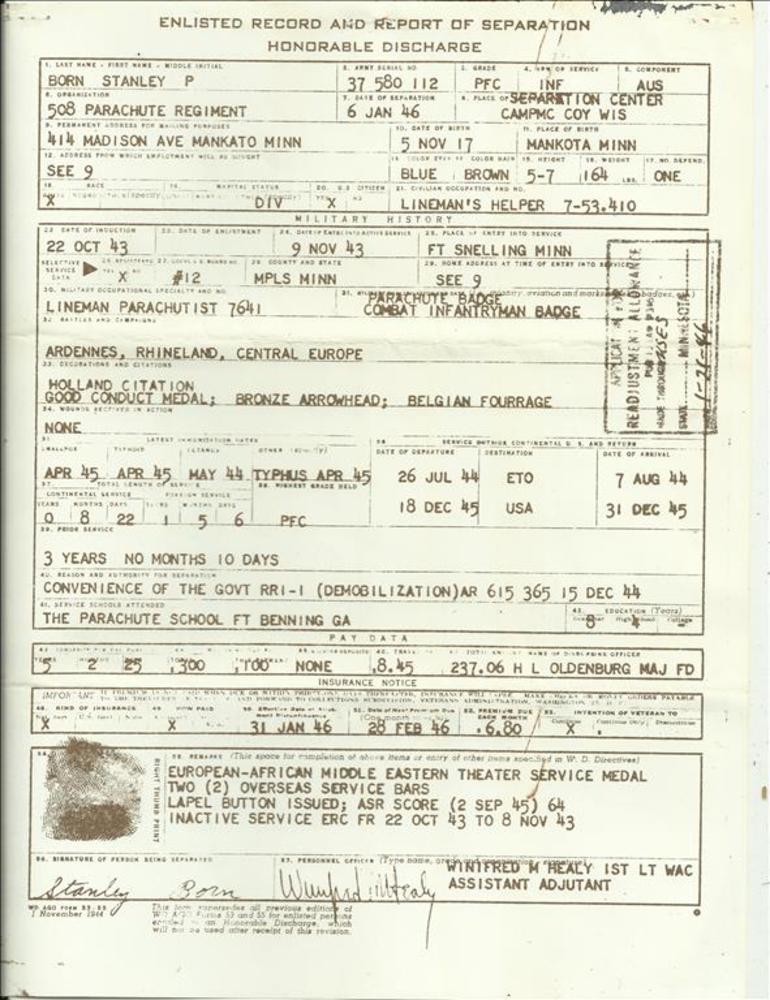 ENLISTED RECORD AND REPORT OF SEPARATION
HONORABLE DISCHARGE
1. LAST NAME - FIRST NAME - MIDDLE INITIAL 2. ARMY SERIAL NO. 3. GRADE 4. ARM OR SERVICE 5. COMPONENT
BORN STANLEY P 37 580 112 PFC INF AUS
6. ORGANIZATION 7. DATE OF SEPARATION 8. PLACE OF SEPARATION CENTER
508 PARACHUTE REGIMENT 6 JAN 46 CAMPMC COY WIS
9. PERMANENT ADDRESS FOR MAILING PURPOSES 10. DATE OF BIRTH 11. PLACE OF BIRTH
414 MADISON AVE MANKATO MINN 5 NOV 17 MANKOTA MINN
12. ADDRESS FROM WHICH EMPLOYMENT WILL BE SOUGHT 13. COLOR EYES 14. COLOR HAIR 15. HEIGHT 16. WEIGHT 17. NO. DEPEND.
SEE 9 BLUE BROWN 5-7 164 LBS. ONE
18. RACE 19. MARITAL STATUS 20. U.S. CITIZEN 21. CIVILIAN OCCUPATION AND NO.
X DIV X LINEMAN'S HELPER 7-53.410
MILITARY HISTORY
22. DATE OF INDUCTION 23. DATE OF ENLISTMENT 24. DATE OF ENTRY INTO ACTIVE SERVICE 25. PLACE OF ENTRY INTO SERVICE
22 OCT 43 9 NOV 43 FT SNELLING MINN
SELECTIVE SERVICE DATA 28. COUNTY AND STATE 29. HOME ADDRESS AT TIME OF ENTRY INTO SERVICE
X #12 MPLS MINN SEE 9
30. MILITARY OCCUPATIONAL SPECIALTY AND NO. 31. PARACHUTE BADGE
LINEMAN PARACHUTIST 7641 COMBAT INFANTRYMAN BADGE
32. BATTLES AND CAMPAIGNS
ARDENNES, RHINELAND, CENTRAL EUROPE
33. DECORATIONS AND CITATIONS
HOLLAND CITATION
GOOD CONDUCT MEDAL; BRONZE ARROWHEAD; BELGIAN FOURRAGE
34. WOUNDS RECEIVED IN ACTION
NONE
READJUSTMENT ALLOWANCE
MINNESOTA
1-21-46
35. LATEST IMMUNIZATION DATES 36. SERVICE OUTSIDE CONTINENTAL U. S. AND RETURN
SMALLPOX TYPHOID TETANUS OTHER (specify) DATE OF DEPARTURE DESTINATION DATE OF ARRIVAL
APR 45 APR 45 MAY 44 TYPHUS APR 45 26 JUL 44 ETO 7 AUG 44
37. TOTAL LENGTH OF SERVICE 38. HIGHEST GRADE HELD
CONTINENTAL SERVICE FOREIGN SERVICE
YEARS MONTHS DAYS YEARS MONTHS DAYS
0 8 22 1 5 6 PFC 18 DEC 45 USA 31 DEC 45
39. PRIOR SERVICE
3 YEARS NO MONTHS 10 DAYS
40. REASON AND AUTHORITY FOR SEPARATION
CONVENIENCE OF THE GOVT RRI-1 (DEMOBILIZATION)AR 615 365 15 DEC 44
41. SERVICE SCHOOLS ATTENDED 42. EDUCATION (Years)
THE PARACHUTE SCHOOL FT BENNING GA 8 4
PAY DATA
5 2 25 300 100 NONE 8.45 237.06 H L OLDENBURG MAJ FD
INSURANCE NOTICE
IMPORTANT
48. KIND OF INSURANCE 49. HOW PAID 52. PREMIUM DUE EACH MONTH 53. INTENTION OF VETERAN TO
X X 31 JAN 46 28 FEB 46 6.80 X
RIGHT THUMB PRINT
55. REMARKS (This space for completion of above items or entry of other items specified in W. D. Directives)
EUROPEAN-AFRICAN MIDDLE EASTERN THEATER SERVICE MEDAL
TWO (2) OVERSEAS SERVICE BARS
LAPEL BUTTON ISSUED; ASR SCORE (2 SEP 45) 64
INACTIVE SERVICE ERC FR 22 OCT 43 TO 8 NOV 43
56. SIGNATURE OF PERSON BEING SEPARATED 57. PERSONNEL OFFICER (Type name,
WINIFRED M HEALY 1ST LT WAC
ASSISTANT ADJUTANT
Stanley Born Winifred M Healy
WD AGO FORM 53-55
1 November 1944
This form supersedes all previous editions of
WD AGO Forms 53 and 55 for enlisted persons
entitled to an Honorable Discharge, which
will not be used after receipt of this revision.